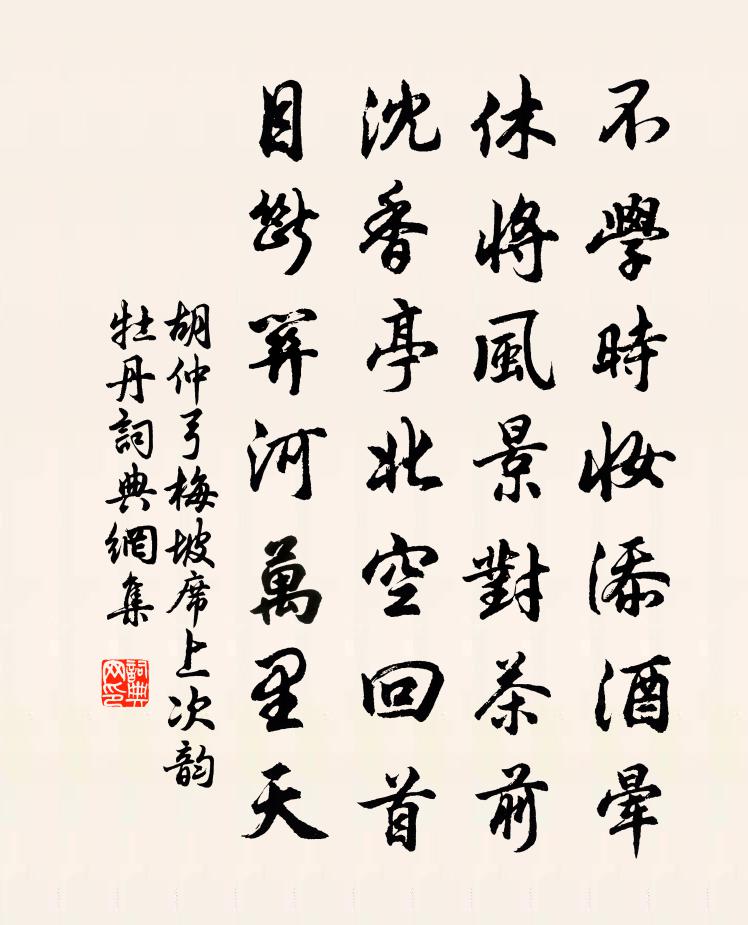 不學時妝添酒暈
休將風景對茶前
沈香亭北空回首
目斷關河萬里天
胡仲弓梅坡席上次韵
牡丹詞典網集
詞典
网印